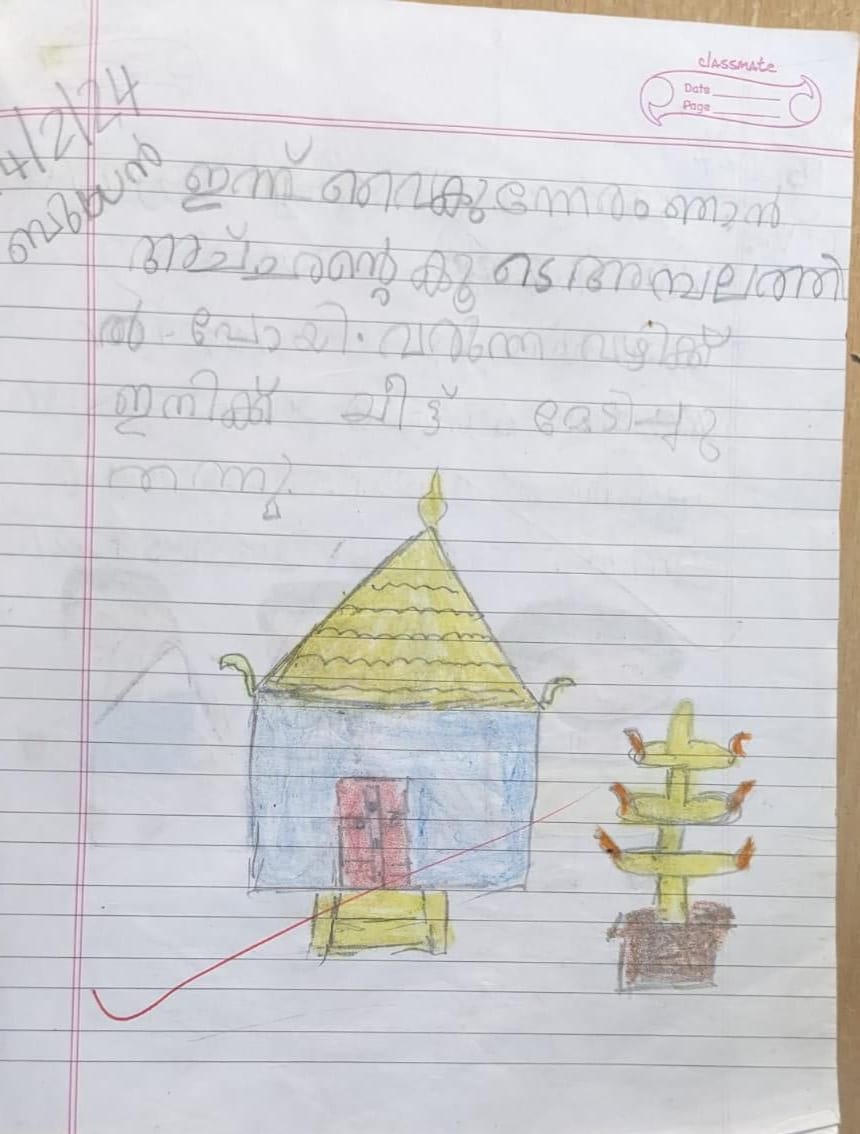 classmate
Date
Page
4/2/24
ബുധൻ
ഇന്ന് വൈകുന്നേരം ഞാൻ
അച്ചന്റെ കൂടെ അമ്പലത്തി
ൽ പോയി. വരുന്ന വഴിക്ക്
ഇനിക്ക് മീട്ട് മേടിച്ചു
തന്നു